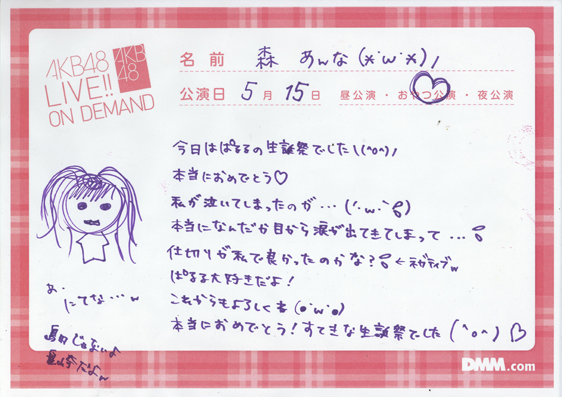 AKB48
LIVE!!
ON DEMAND
AKB
48
名前 森 あんな (*・ω・*)ﾉ
公演日 5月 15日 昼公演・おやつ公演・夜公演
今日はぱるるの生誕祭でした\(^o^)ﾉ
本当におめでとう♡
私が泣いてしまったのが…(´・ω・`)
本当になんだか目から涙が出てきてしまって…
仕切りが私で良かったのかな? ←ネガティブw
ぱるる大好きだよ!
これからもよろしくね(・ω・)
本当におめでとう!すてきな生誕祭でした(^o^)♡
あ.
にてな…w
じゃないよ
だよw
DMM.com